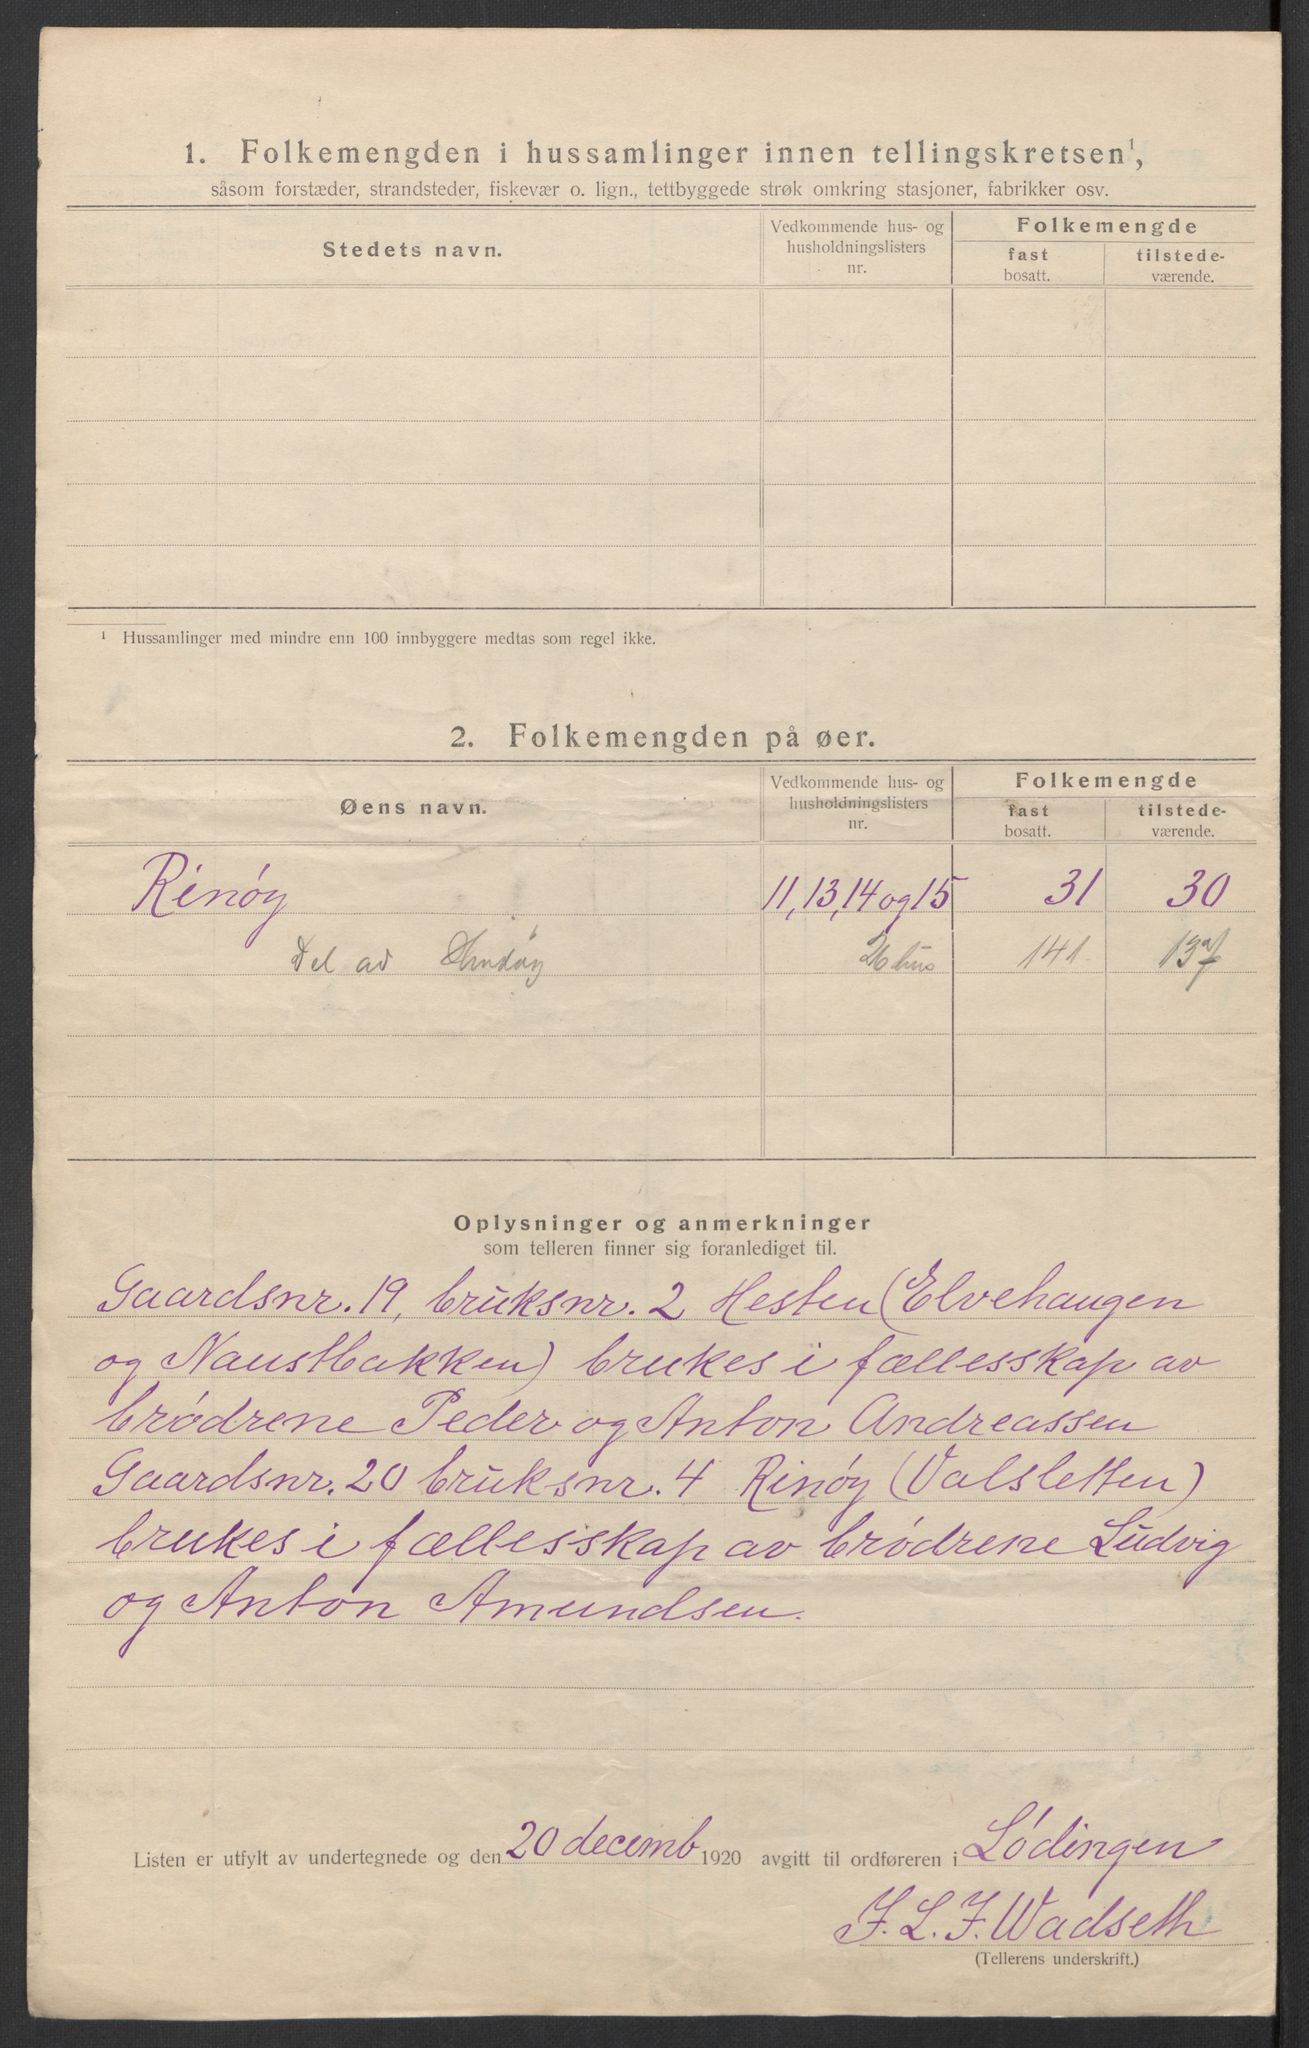 1. Folkemengden i hussamlinger innen tellingskretsen¹,
såsom forstæder, strandsteder, fiskevær o. lign., tettbyggede strøk omkring stasjoner, fabrikker osv.
Stedets navn.
Vedkommende hus- og husholdningslisters nr.
Folkemengde
fast bosatt.
tilstede-værende.
¹ Hussamlinger med mindre enn 100 innbyggere medtas som regel ikke.
2. Folkemengden på øer.
Øens navn.
Vedkommende hus- og husholdningslisters nr.
Folkemengde
fast bosatt.
tilstede-værende.
Rinøy 11, 13, 14 og 15 31 30
Del av Hindøy 26 hus 141
Oplysninger og anmerkninger
som telleren finner sig foranlediget til.
Gaardsnr. 19, bruksnr. 2 Hesten (Elvehaugen
og Naustbakken) brukes i fællesskap av
brødrene Peder og Anton Andreassen
Gaardsnr. 20 bruksnr. 4 Rinøy (Valsletten)
brukes i fællesskap av brødrene Ludvig
og Anton Amundsen.
Listen er utfylt av undertegnede og den 20 decemb 1920 avgitt til ordføreren i Lødingen
J. L. J. Wadseth
(Tellerens underskrift.)